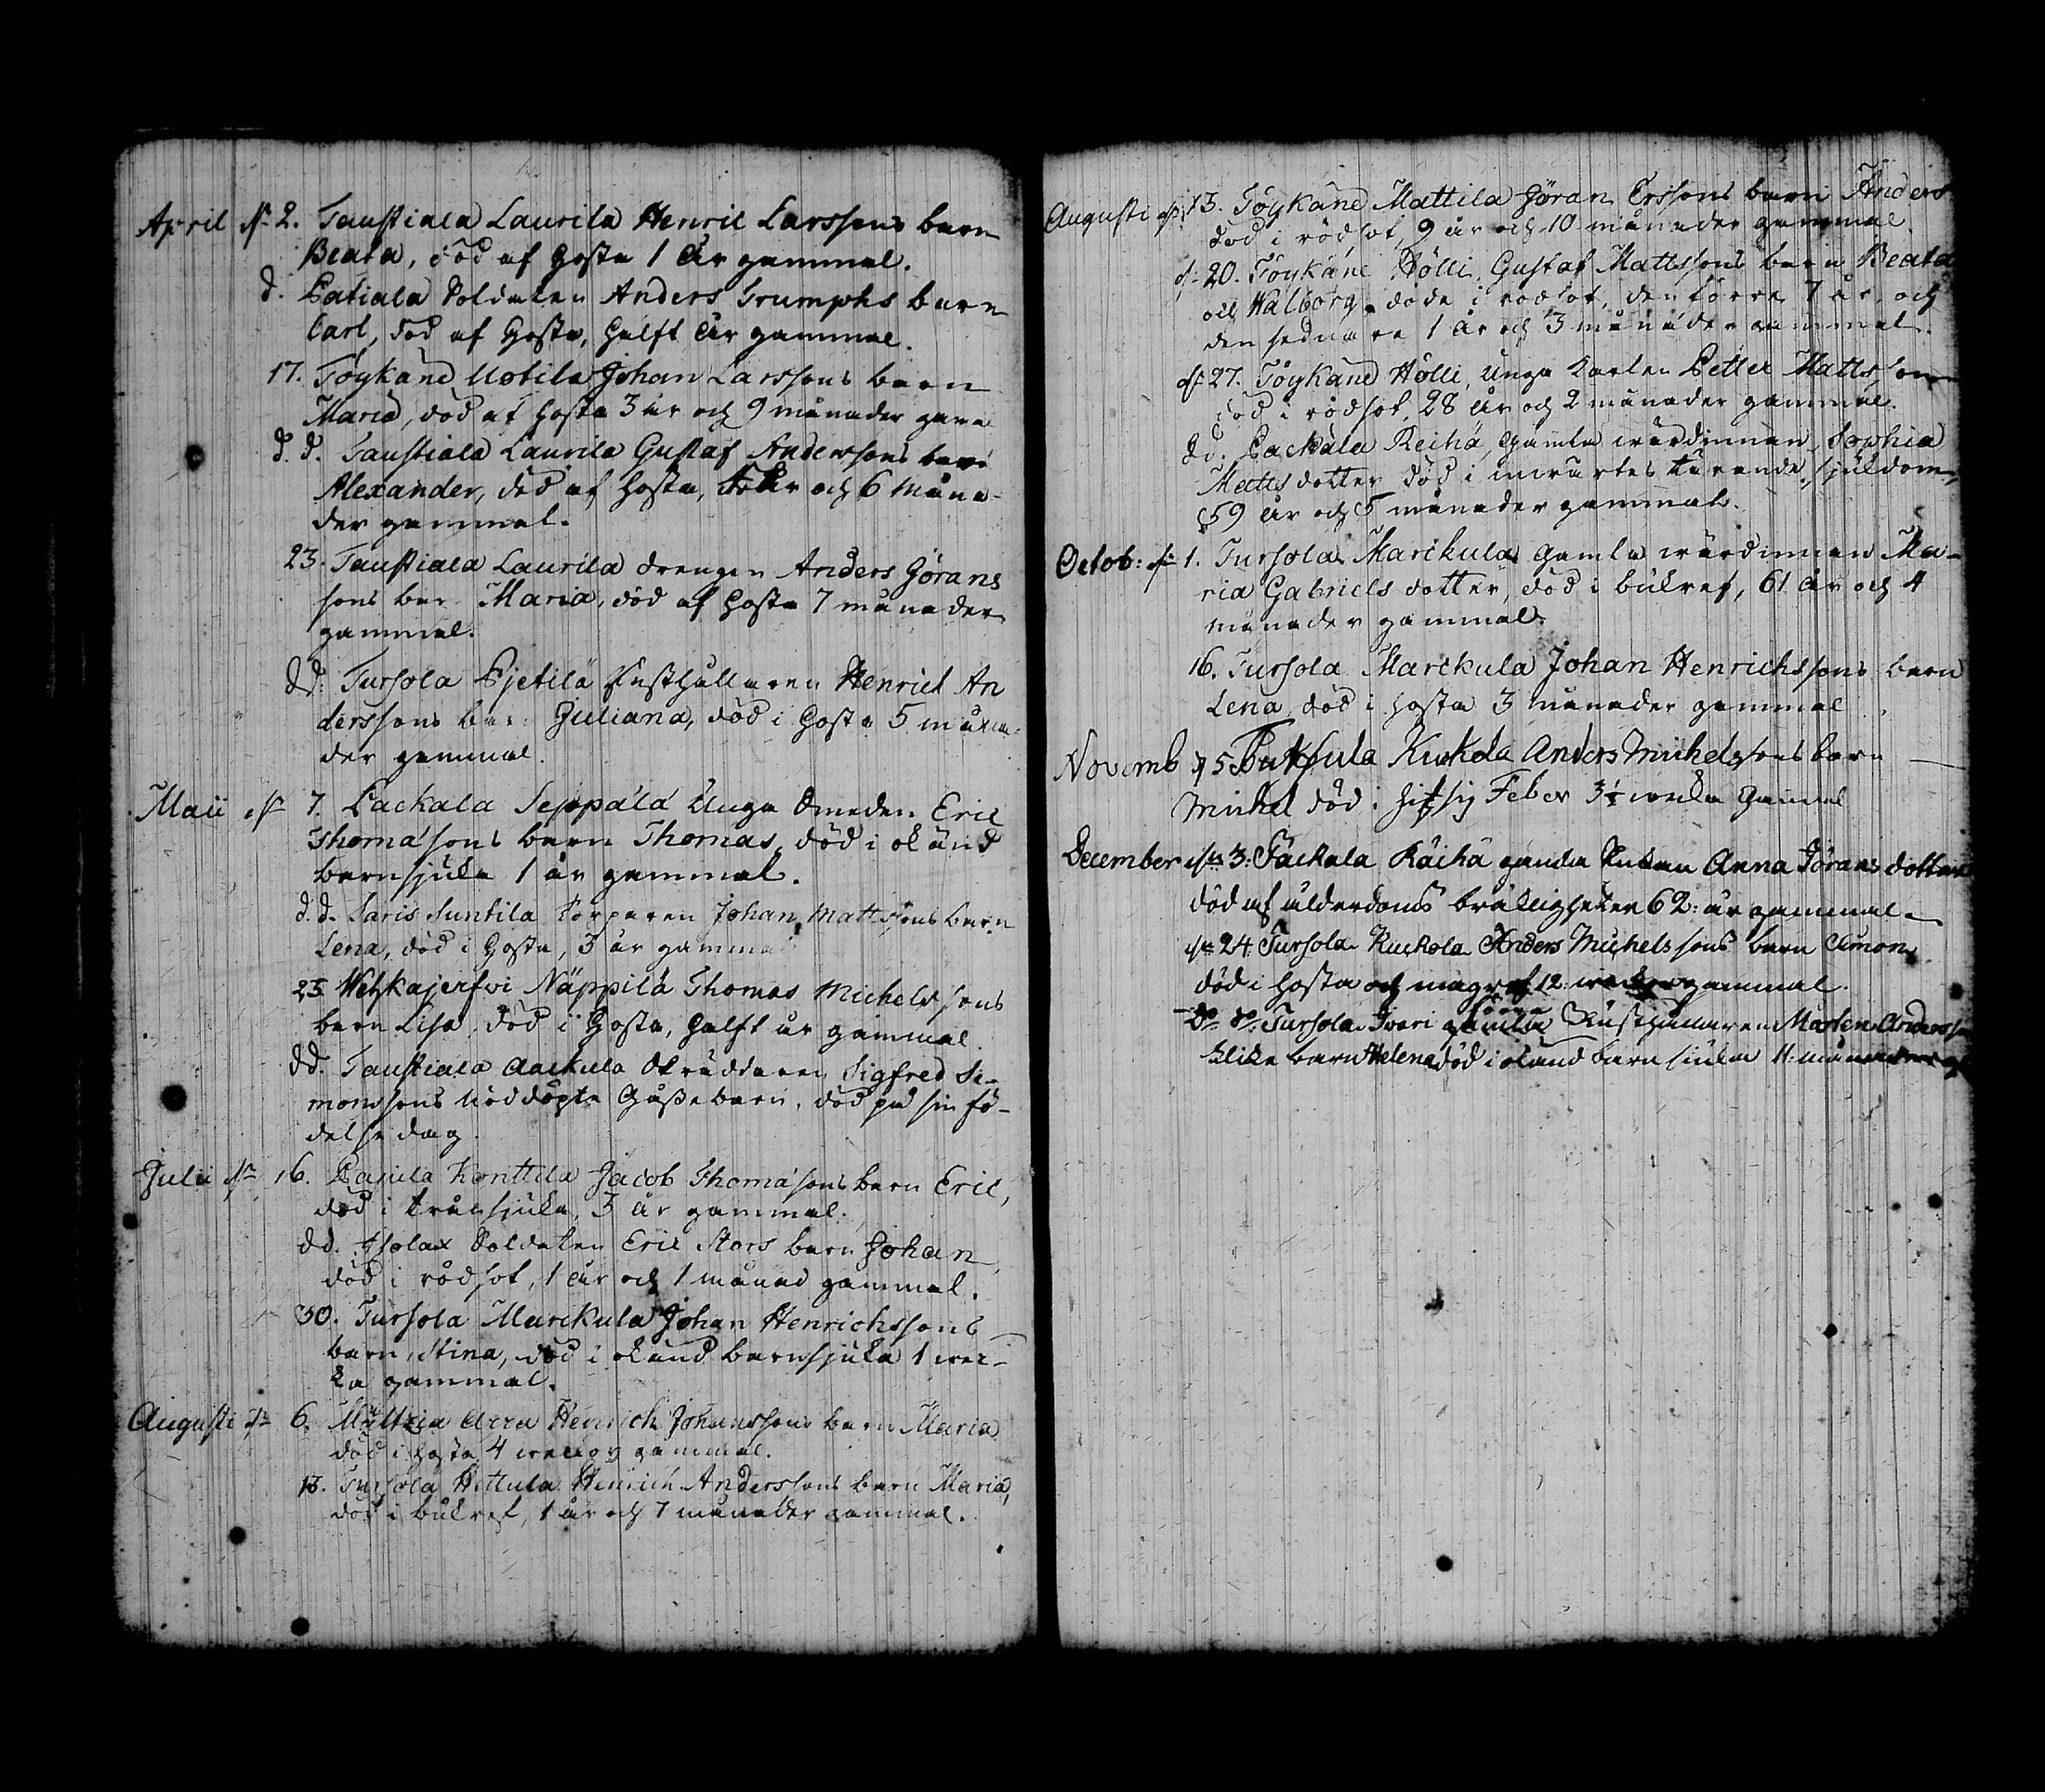 April d. 2. Taustiala Laurila Henric Larssons barn
Beata, död af hosta 1 år gammal.
d. Patiala Soldaten Anders Trumphs barn
Carl, död af hosta, halft år gammal.
17. Töykänä Uotila Johan Larssons barn
Maria, död af hosta 3 år och 9 månader gam̅al
d. d. Taustiala Laurila Gustaf Anderssons barn
Alexander, död af hosta, år och 6 måna-
der gammal.
23. Taustiala Laurila drengen Anders Görans
sons barn Maria, död af hosta 7 månader
gammal.
dd. Tursola Pjetilä Rusthållaren Henrich An
derssons barn Juliana, död i hosta 5 måna-
der gammal.
Maii d. 7. Packala Seppälä Unga Smeden Eric
Thomæsons barn Thomas, död i okänd
barnsjuka 1 år gammal.
d. d. Saris Suntila torparen Johan Mattssons barn
Lena, död i hosta, 3 år gammal
25 Wehkajerfvi Näppilä Thomas Michelssons
barn Lisa, död i hosta, halft år gammal.
dd. Taustiala Aackula Skräddaren Sigfred Si-
monssons nöddöpta gåssebarn, död på sin fö-
delsedag.
Julii d. 16. Pajula Konttila Jacob Thomæsons barn Eric,
död i tråssjuka, 3 år gammal.
dd. Isolax Soldaten Eric Stors barn Johan,
död i rödsot, 1 år och 1 månad gammal.
30. Tursola Marckula Johan Henrichssons
barn, Stina, död i okänd barnsjuka 1 wec-
ka gammal.
Augusti d. 6. Mälkiä Henrich Johanssons barn Maria
död i hosta 4 weckor gammal.
13. Tursola Hettula Henrich Anderssons barn Maria,
död i bukref, 1 år och 7 månader gammal.
Augusti d. 13. Töykänä Mattila Göran Erssons barn Anders
död i rödsot, 9 år och 10 månader gammal.
d. 20. Töykänä Hölli Gustaf Mattssons barn Beata
och Walborg, döde i rödsot, den förre 7 år, och
den sednare 1 år och 3 månader gammal.
d. 27. Töykänä Hölli, Unga Karlen Petter Mattsson
död i rödsot, 28 år och 2 månader gammal.
dd. Packala Reihä, gamla wärdinnan, Sophia
Matts dotter död i inwärtes tärande sjukdom,
59 år och 5 månader gammal.
Octob: d. 1. Tursola Marckula gamla wärdinnan Ma-
ria Gabriels dotter, död i bukref, 61 år och 4
månader gammal.
16. Tursola Marckula Johan Henrichssons barn
Lena, död i hosta 3 månader gammal
Novemb d 5 Kuckola Anders Michelssons barn
Michel död i hitsig Feber 3½ wecka gammal
December d. 3. Päckala Räihä gamla Enkan Anna Görans dotter
död af ålderdoms bräklighet 62: år gammal.
d. 24. Tursola Kuckola Anders Michels sons barn Simon,
död i hosta och magref 12: weckor gammal.
do. do. Tursola Iwari gamla Rusthållaren Marten Andersson
förra
barn Helena, död i okänd barn siuka 11: månader